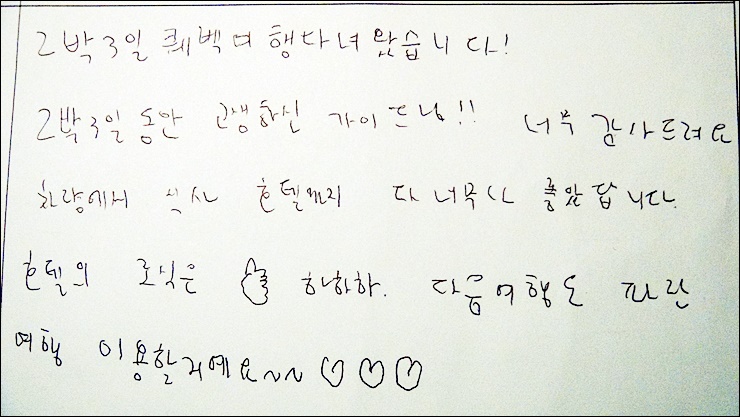 2박3일 퀘벡여행다녀왔습니다!
2박3일 동안 고생하신 가이드님!! 너무 감사드려요
차량에서 식사 호텔까지 다 너무나 좋았답니다.
호텔의 조식은 하하하. 다음여행도 파란
여행 이용할거에요~~ ♡♡♡